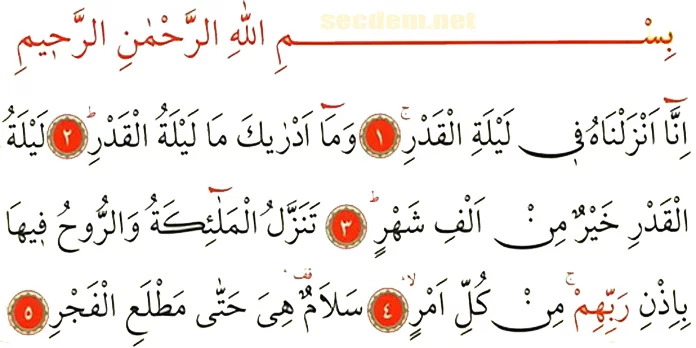 secdem.net
بِسْمِ اللهِ الرَّحْمٰنِ الرَّحٖيمِ
اِنَّٓا اَنْزَلْنَاهُ فٖى لَيْلَةِ الْقَدْرِۚ ﴿١﴾ وَمَٓا اَدْرٰيكَ مَا لَيْلَةُ الْقَدْرِؕ ﴿٢﴾ لَيْلَةُ
الْقَدْرِ خَيْرٌ مِنْ اَلْفِ شَهْرٍؕ ﴿٣﴾ تَنَزَّلُ الْمَلٰٓئِكَةُ وَالرُّوحُ فٖيهَا
بِاِذْنِ رَبِّهِمْۚ مِنْ كُلِّ اَمْرٍۙ ﴿٤﴾ سَلَامٌ۠ هِىَ حَتّٰى مَطْلَعِ الْفَجْرِ ﴿٥﴾